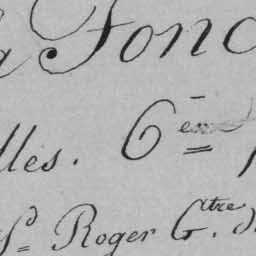 a Fonc
lles. 6em
Sd Roger G.atre d